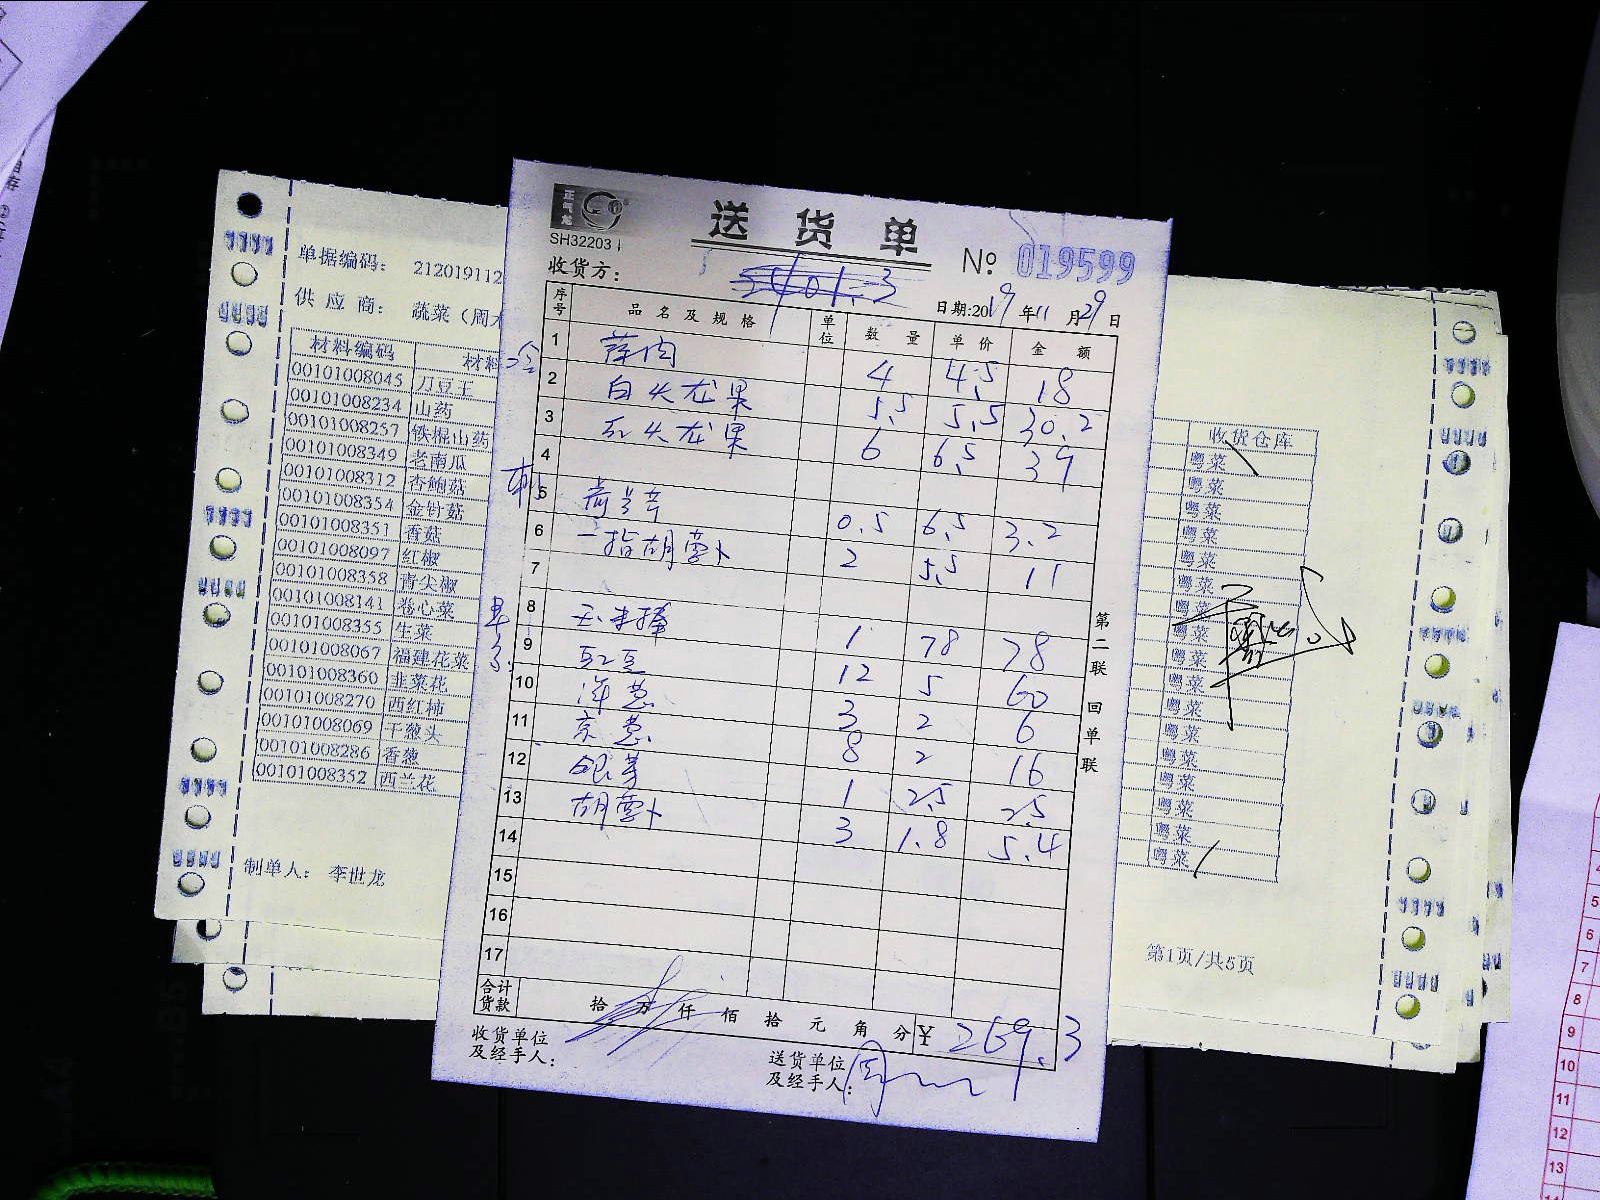 正气龙
SH32203
送货单
№ 019599
收货方：
5401.3
日期:2019年11月29日
序号 品名及规格 单位 数量 单价 金额
1 蒜肉 4 4.5 18
2 白火龙果 5.5 5.5 30.2
3 红火龙果 6 6.5 39
4
5 0.5 6.5 3.2
6 二指胡萝卜 2 5.5 11
7
8 玉米棒 1 78 78
9 豇豆 12 5 60
10 洋葱 3 2 6
11 京葱 8 2 16
12 银芽 1 2.5 2.5
13 胡萝卜 3 1.8 5.4
14
15
16
17
合计货款 拾 万 仟 佰 拾 元 角 分 ¥ 269.3
收货单位及经手人：
送货单位及经手人： 周
第二联 回单联
单据编码： 212019112
供应商： 蔬菜（周
材料编码 材料
00101008045 刀豆王
00101008234 山药
00101008257 铁棍山药
00101008349 老南瓜
00101008312 杏鲍菇
00101008354 金针菇
00101008351 香菇
00101008097 红椒
00101008358 青尖椒
00101008141 卷心菜
00101008355 生菜
00101008067 福建花菜
00101008360 韭菜花
00101008270 西红柿
00101008069 干葱头
00101008286 香葱
00101008352 西兰花
制单人： 李世龙
收货仓库
粤菜
粤菜
粤菜
粤菜
粤菜
粤菜
粤菜
粤菜
粤菜
粤菜
粤菜
粤菜
粤菜
粤菜
粤菜
粤菜
粤菜
第1页/共5页
5
6
7
8
9
10
11
12
13